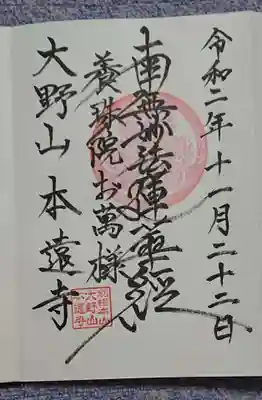 令和二年十一月二十二日
南無妙法蓮華経
養珠院お萬様
大野山本遠寺